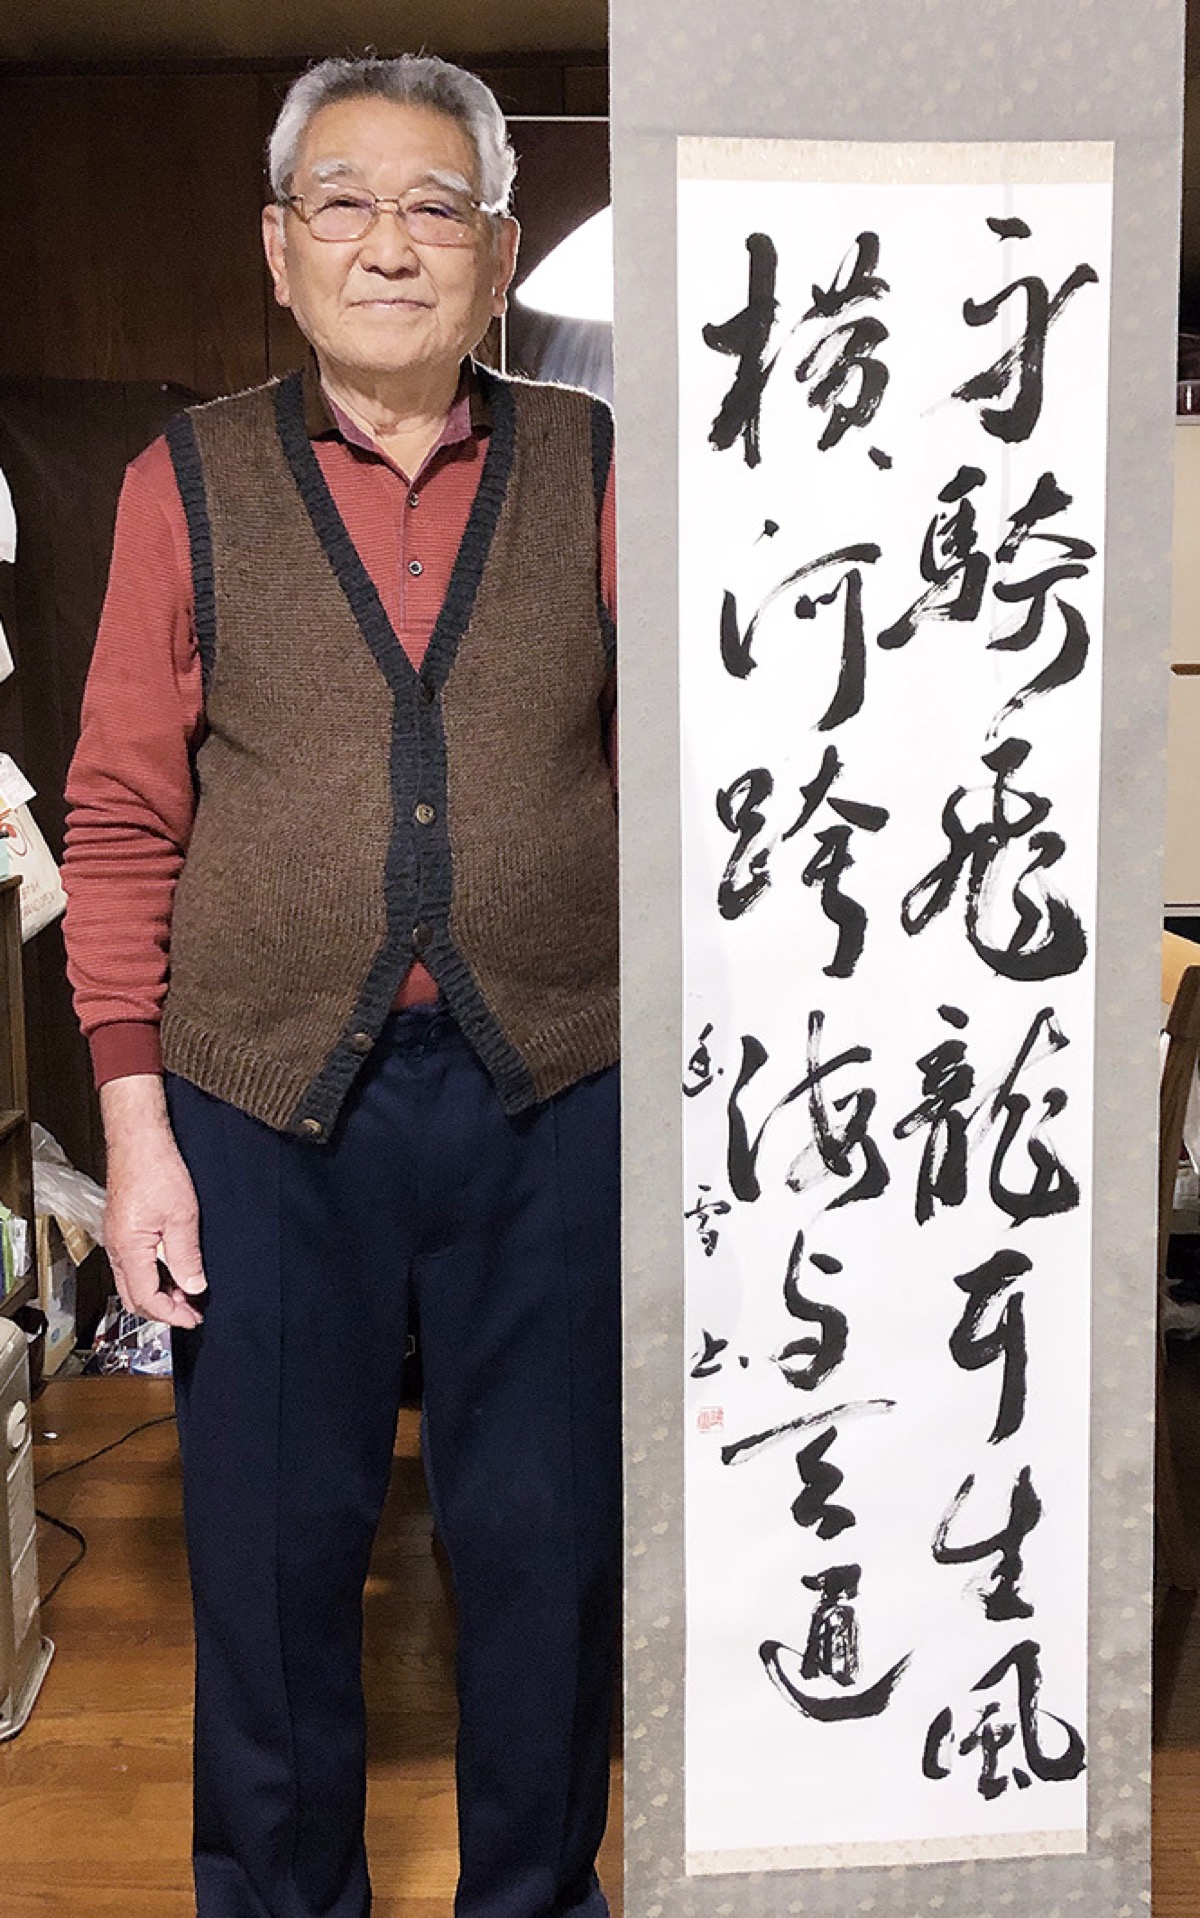 身騎飛龍耳生風
横河跨海与天通
雪